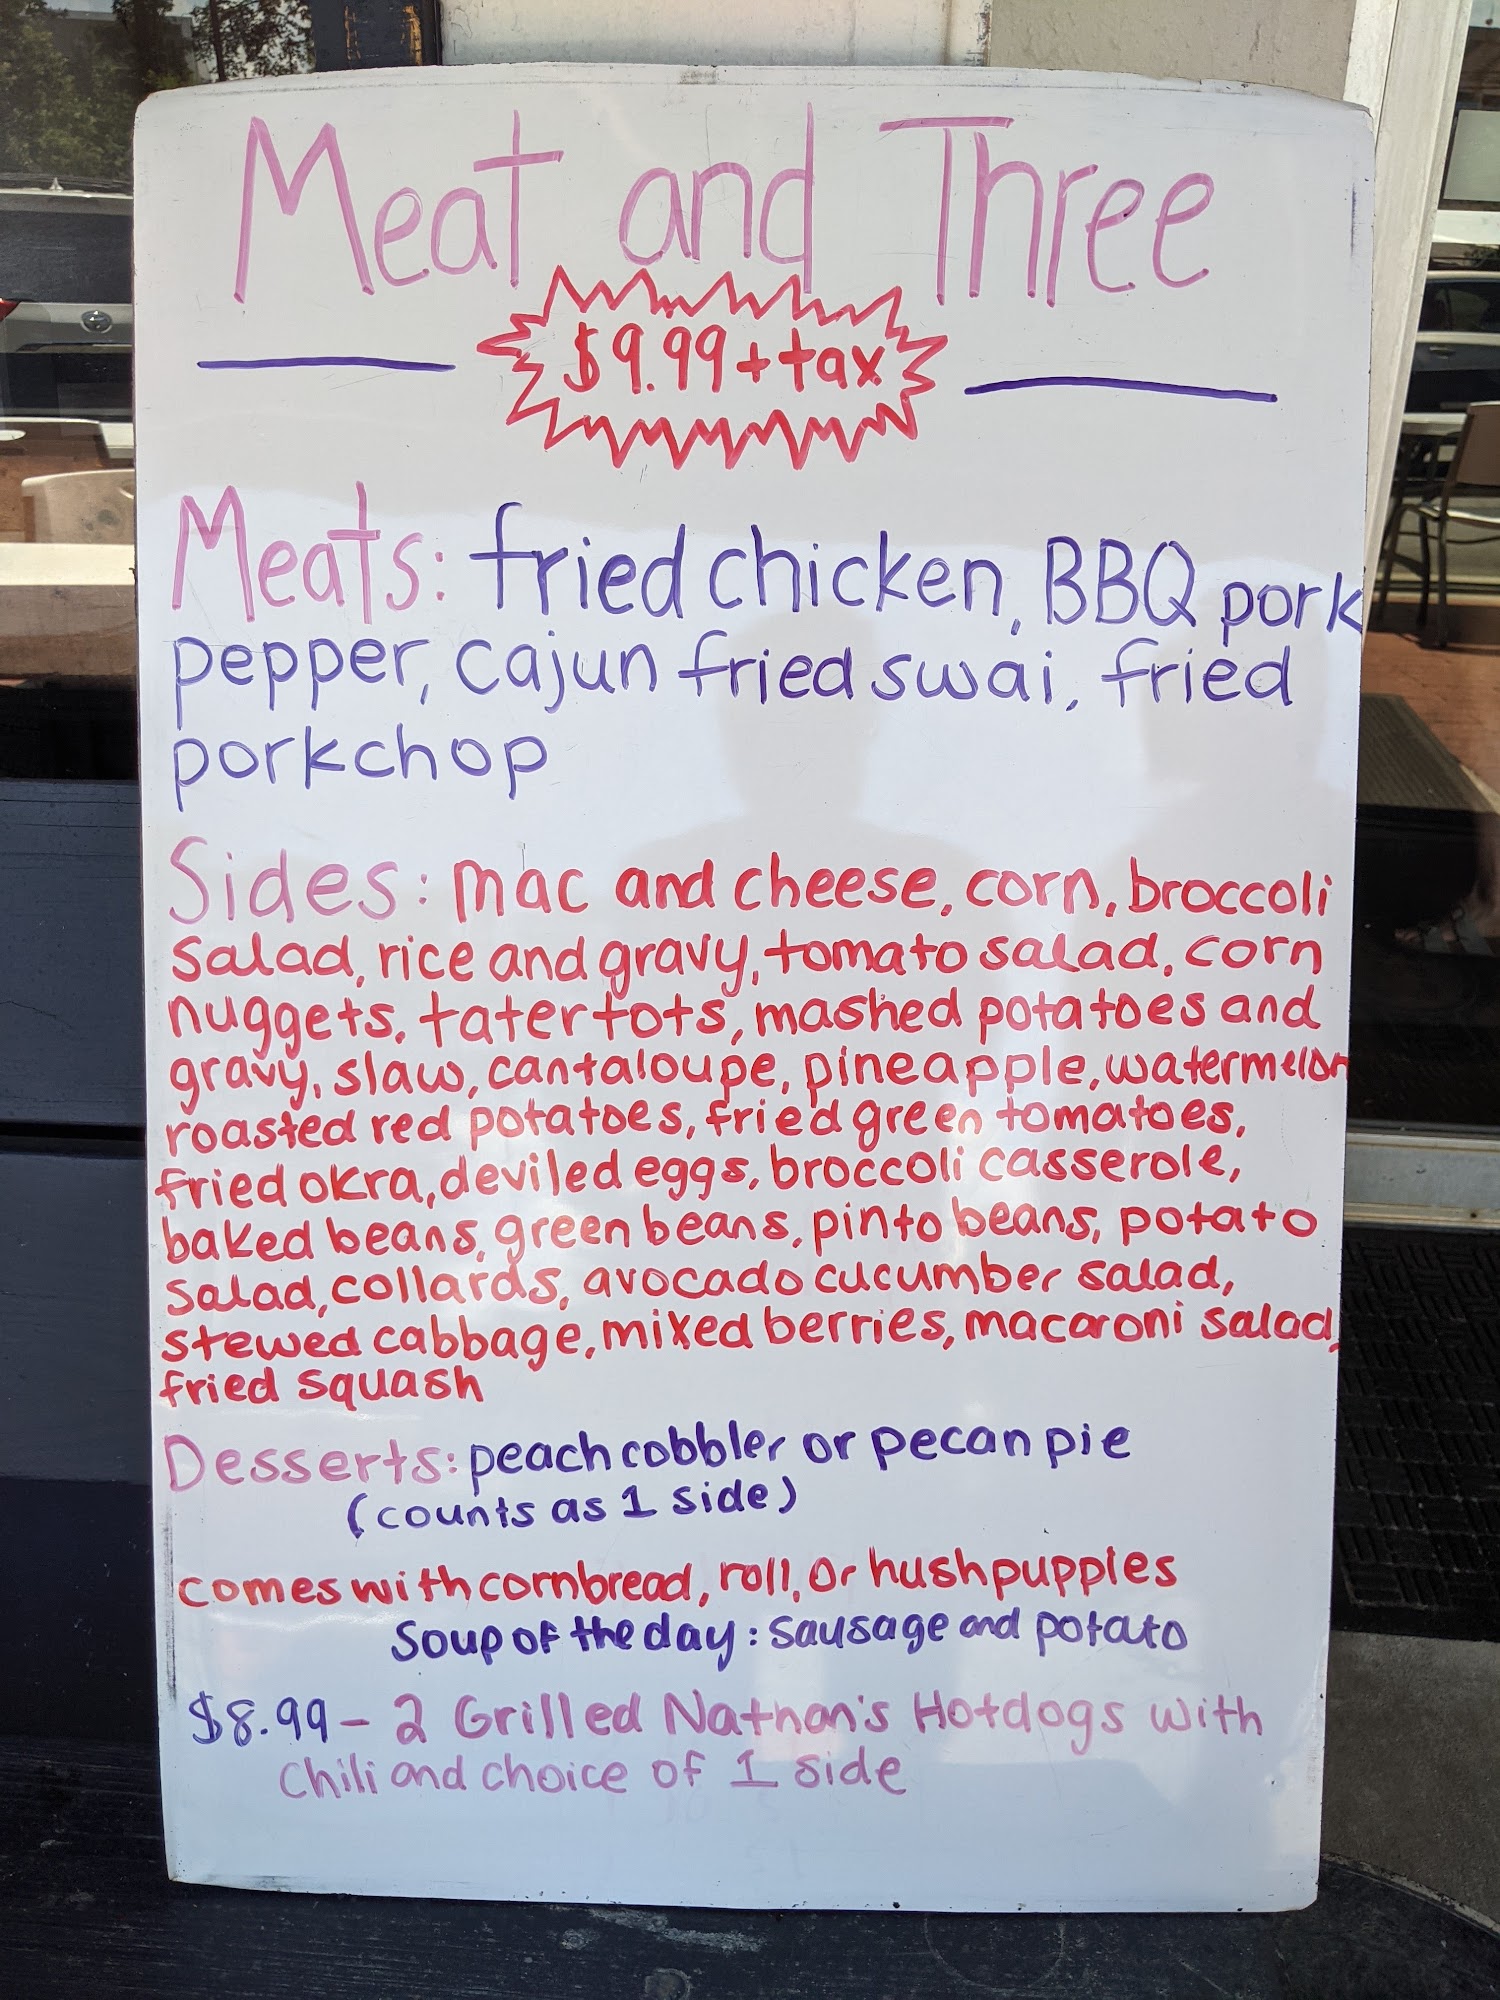 Meat and Three
$9.99 + tax
Meats: fried chicken, BBQ pork
pepper, cajun fried swai, fried
porkchop
Sides: mac and cheese, corn, broccoli
salad, rice and gravy, tomato salad, corn
nuggets, tater tots, mashed potatoes and
gravy, slaw, cantaloupe, pineapple, watermelon
roasted red potatoes, fried green tomatoes,
fried okra, deviled eggs, broccoli casserole,
baked beans, green beans, pinto beans, potato
salad, collards, avocado cucumber salad,
stewed cabbage, mixed berries, macaroni salad,
fried squash
Desserts: peach cobbler or pecan pie
(counts as 1 side)
comes with cornbread, roll, or hushpuppies
Soup of the day: sausage and potato
$8.99 - 2 Grilled Nathan's Hotdogs with
Chili and choice of 1 side